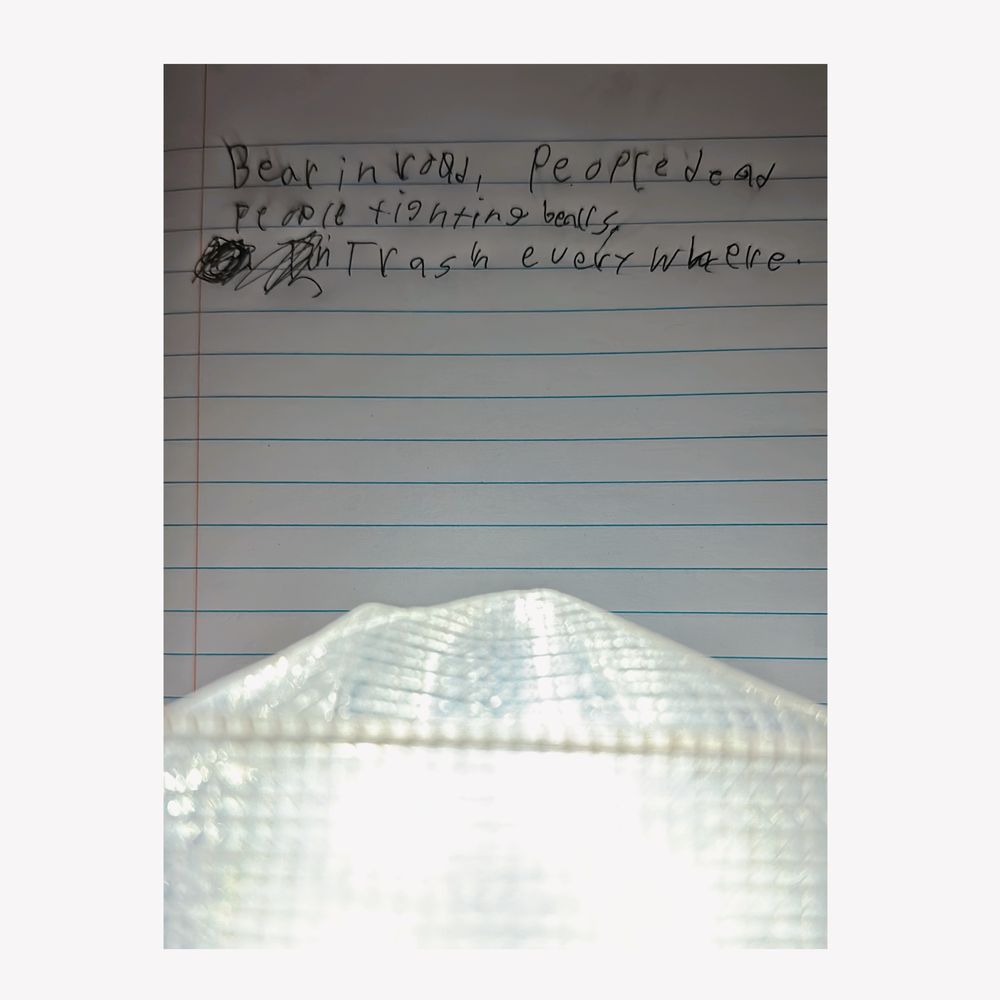 Bear in road, People dead
people fighting bears,
Trash everywhere.